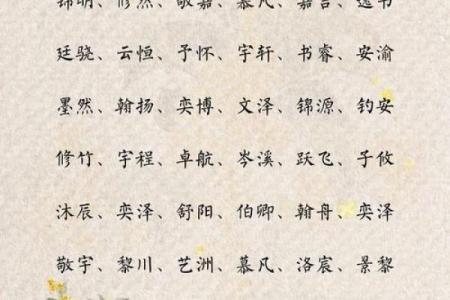 锦明、修然、敬嘉、慕凡、嘉言、逸书
廷骁、云恒、予怀、宇轩、书睿、安渝
墨然、翰扬、奕博、文泽、锦源、钧安
修竹、宇程、卓航、岑溪、跃飞、子攸
沐辰、奕泽、舒阳、伯卿、翰舟、奕泽
敬宇、黎川、艺洲、慕凡、洛宸、景黎